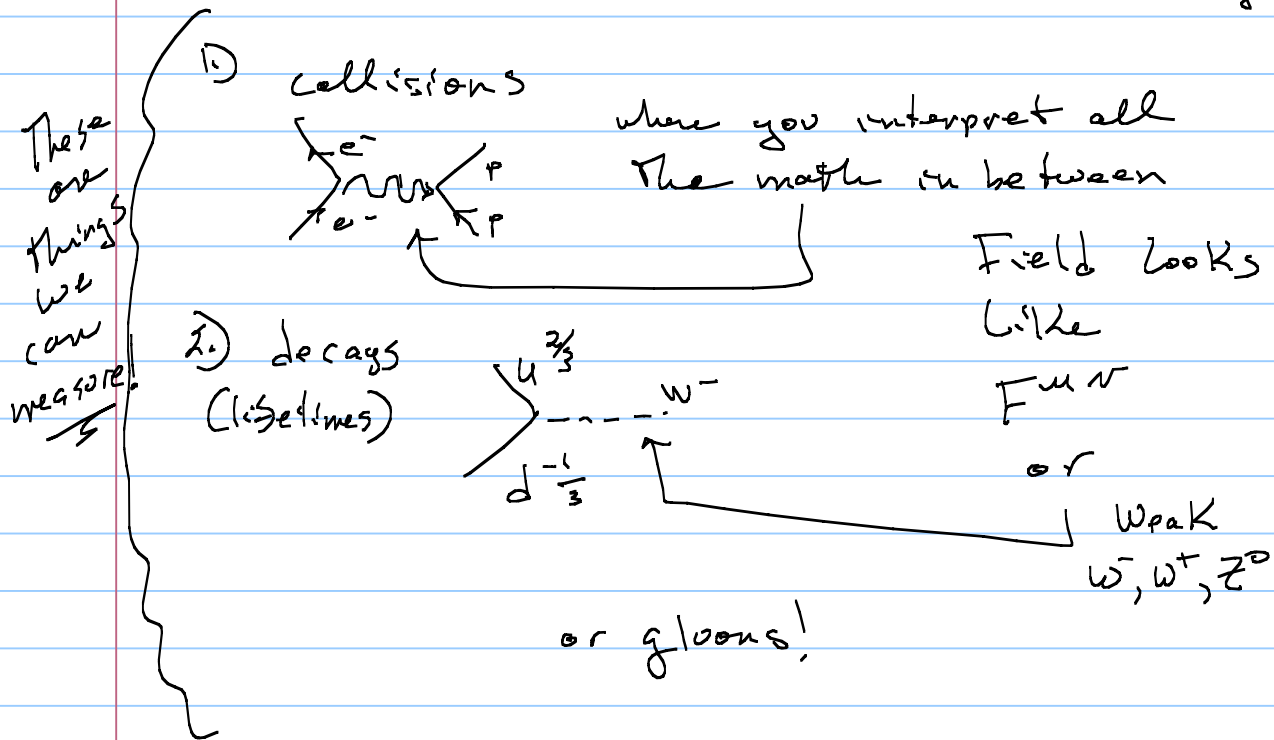 These
are
things
we
can
measure!
1.) collisions
e⁻
e⁻
p
p
where you interpret all
the math in between
Field looks
like
F^{μν}
or
Weak
W⁻, W⁺, Z⁰
2.) decays
(lifetimes)
u^{2/3}
d^{-1/3}
W⁻
or gluons!